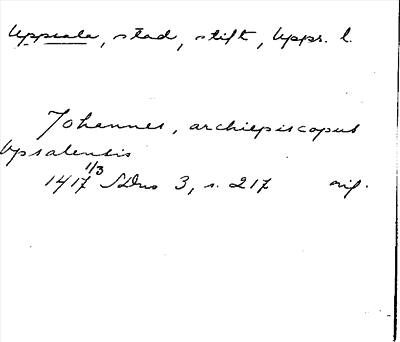 Uppsala, stad, stift, Uppr. l.
Johannes, archiepiscopus
Upsalensis
1417 1/3 SDns 3, s. 217 orig.